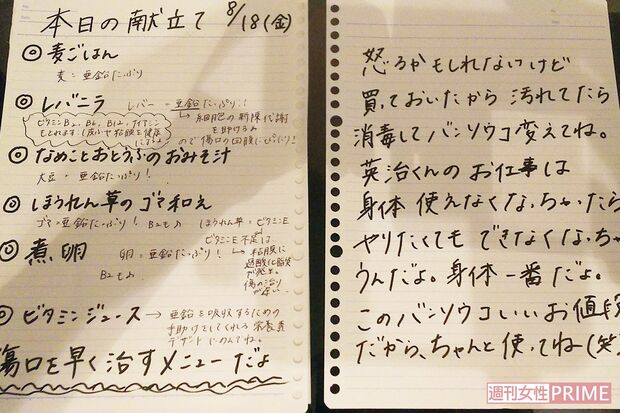 本日の献立て 8/18(金)
◎麦ごはん
麦=亜鉛たっぷり
◎レバニラ レバー=亜鉛たっぷり!!
ビタミンB2、B6、B12、ナイアシン
もとれます!皮ふや粘膜を健康
にするよ
→細胞の新陳代謝
を助ける
ので傷口の回膜にぴったり!
◎なめことおとうふのおみそ汁
大豆=亜鉛たっぷり!
◎ほうれん草のゴマ和え
ゴマ=亜鉛たっぷり! B2も♪ ほうれん草=ビタミンE
ビタミンE不足は
◎煮卵 卵=亜鉛たっぷり!
B2も♪
→粘膜に
過酸化脂質
が発生。
傷の治り
が遅い
◎ビタミンジュース→亜鉛を吸収するための
手助けをしてくれる栄養素
デザートにのんでね。
傷口を早く治すメニューだよ
怒るかもしれないけど
買っておいたから 汚れてたら
消毒してバンソウコ変えてね。
英治くんのお仕事は
身体 使えなくなっちゃったら
やりたくても できなくなっちゃ
うんだよ。身体一番だよ。
このバンソウコいいお値段
だから、ちゃんと使ってね(笑)
週刊女性PRIME